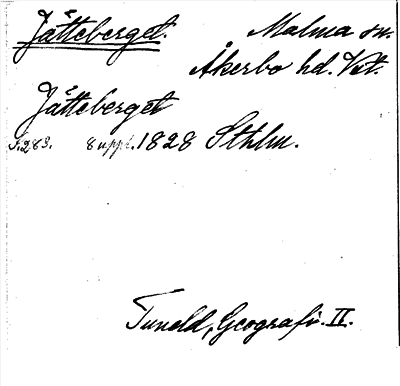 Jätteberget. Malma sn.
Åkerbo hd. Vstl.
Jätteberget
s. 283. 8 uppl. 1828 Sthlm.
Tuneld, Geografi. II.